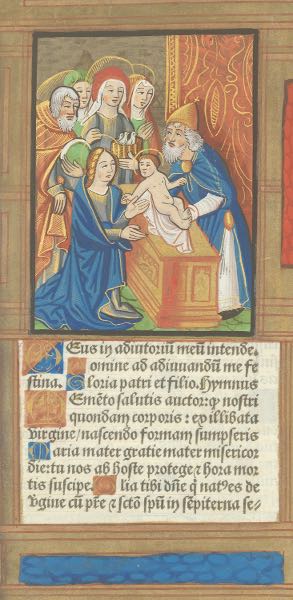 Deus in adiutoriũ meũ intende.
Domine ad adiuuandũ me fe
stina. Gloria patri et filio. Hymnus
Memẽto salutis auctor: ꝙ nostri
quondam corporis: ex illibata
virgine/ nascendo formam sumpseris
Maria mater gratie mater misericor
die:tu nos ab hoste protege ⁊ hora mor
tis suscipe. Gloria tibi dñe q̃ natꝰes de
ṽgine cũ pr̃e ⁊ sctõ spũ in sẽpiterna se-